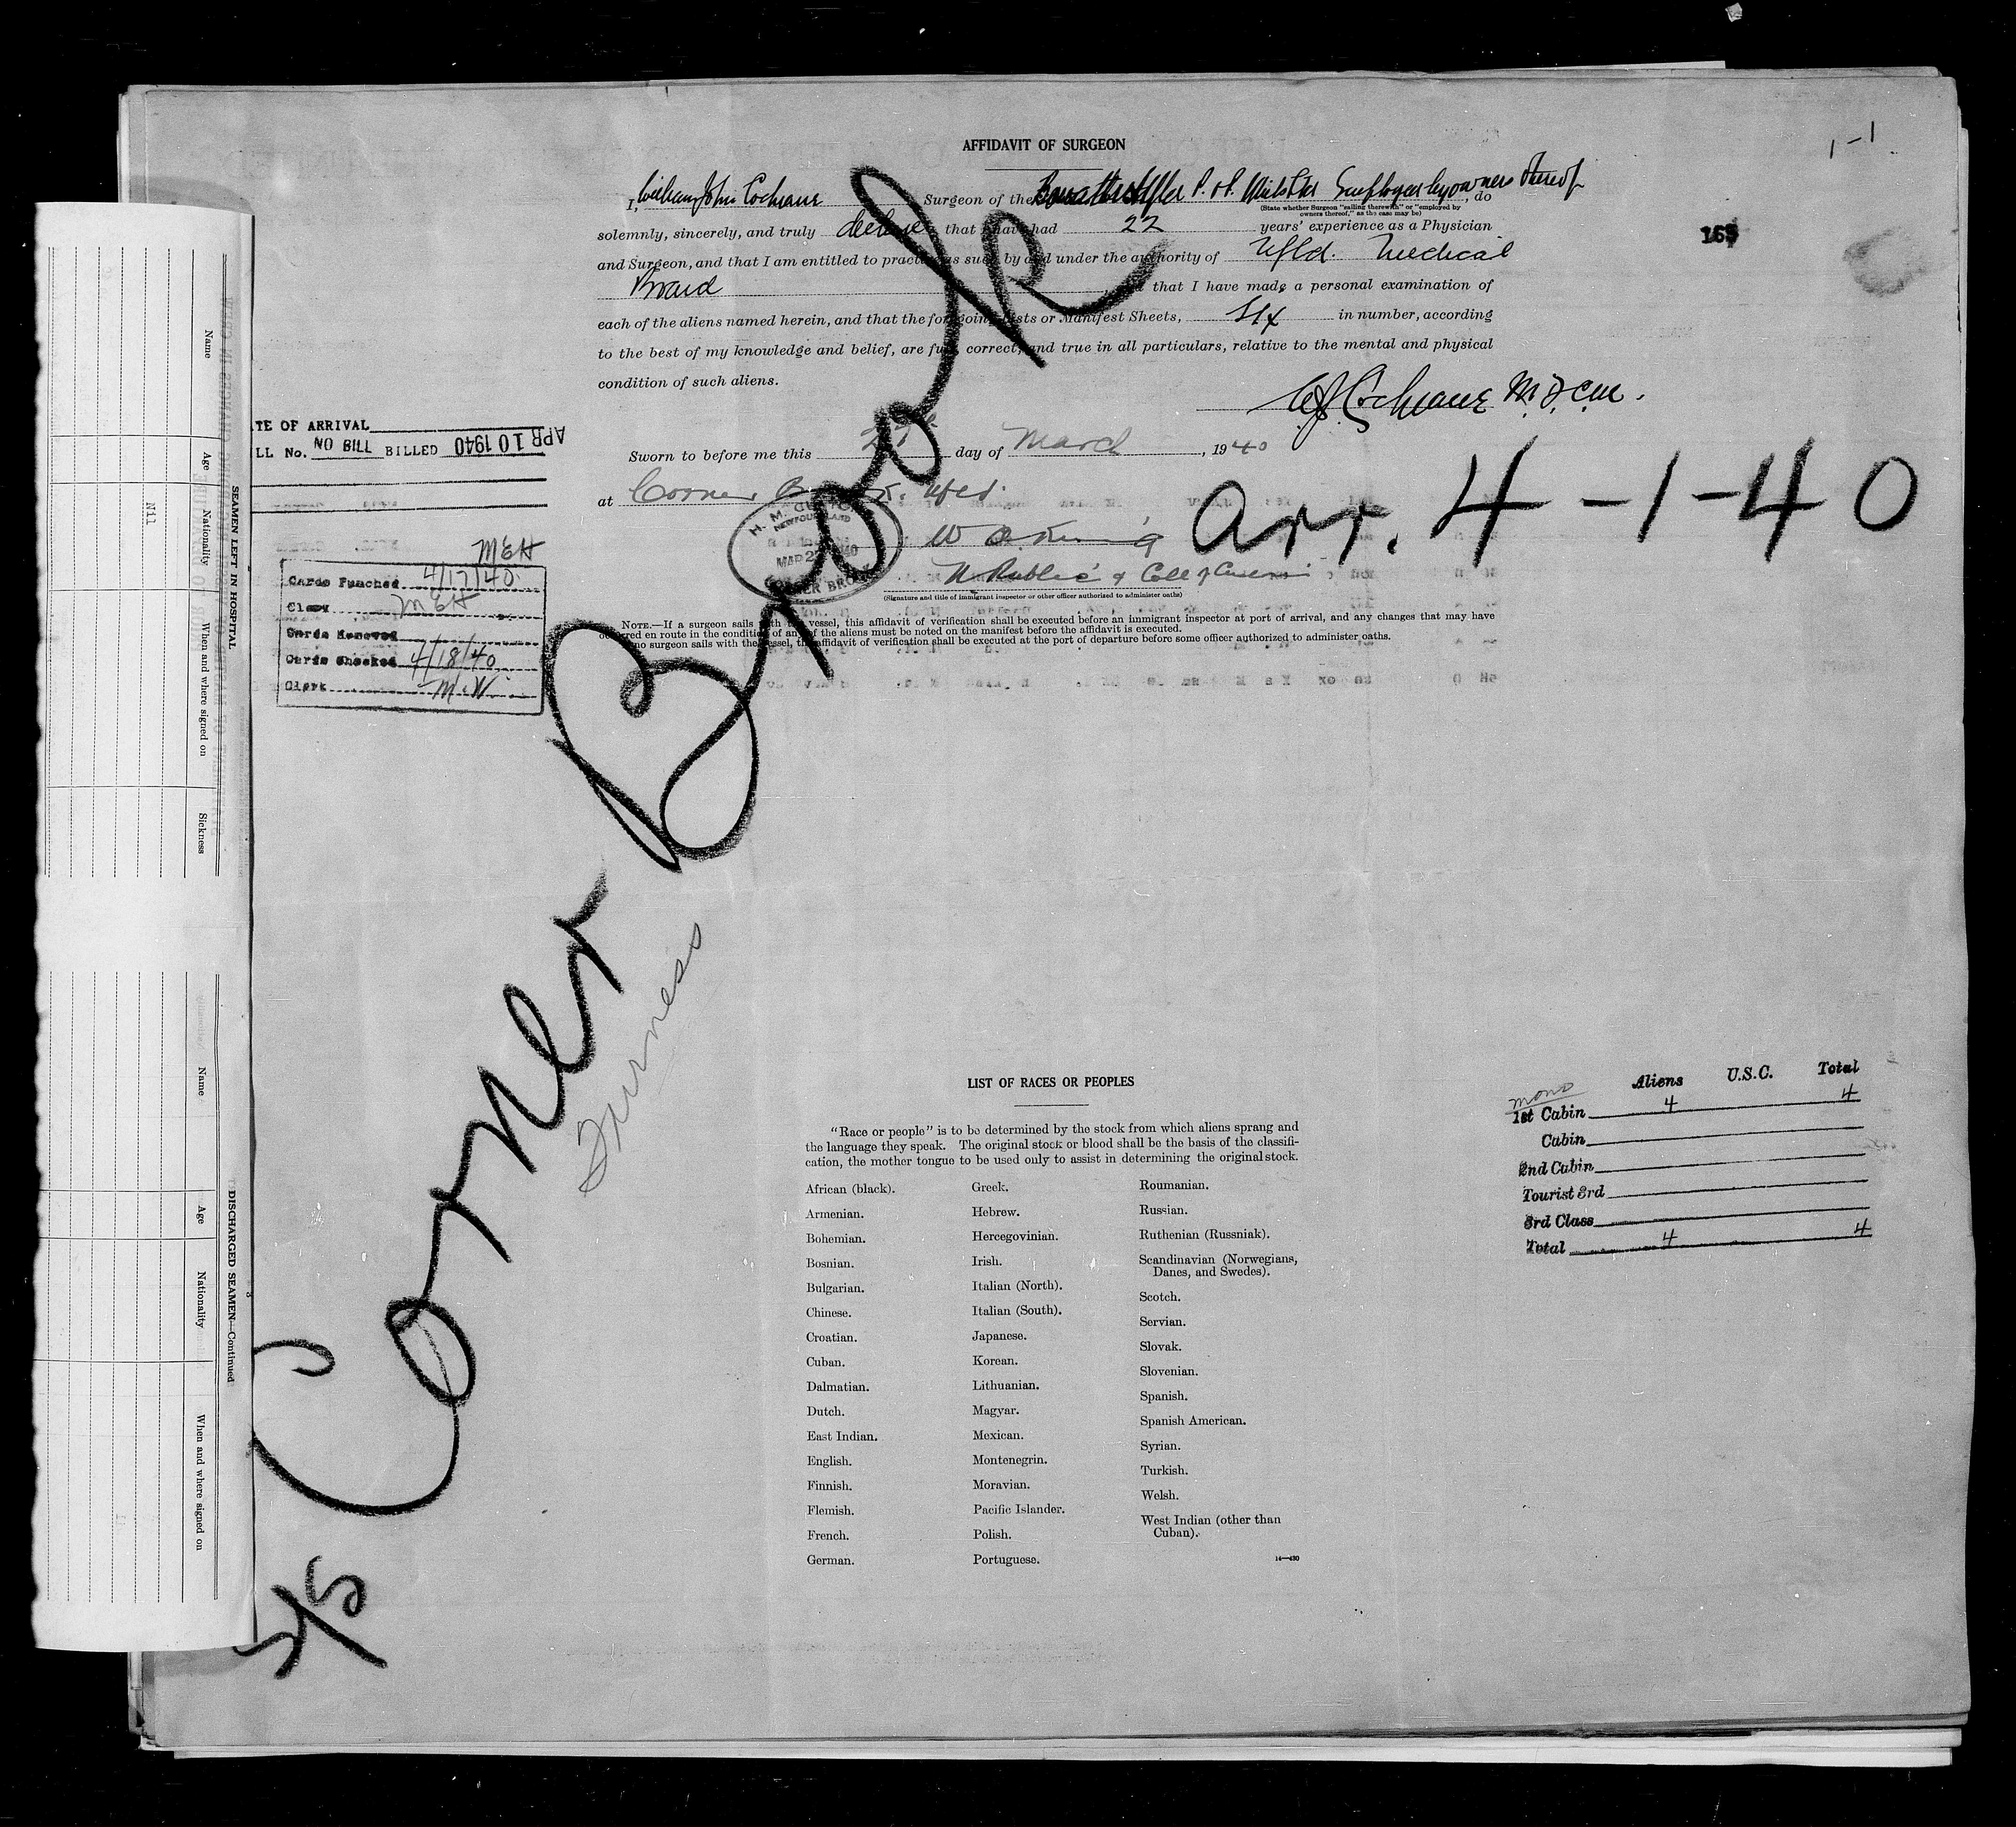 AFFIDAVIT OF SURGEON
1-1
I, William John Cochrane Surgeon of the P. & P. Employed by owners thereof, do
(State whether Surgeon "sailing therewith" or "employed by
owners thereof," as the case may be)
solemnly, sincerely, and truly declare that I have had 22 years' experience as a Physician
165
and Surgeon, and that I am entitled to practice as such by and under the authority of Nfld. Medical
Board that I have made a personal examination of
each of the aliens named herein, and that the foregoing Lists or Manifest Sheets, Six in number, according
to the best of my knowledge and belief, are full, correct, and true in all particulars, relative to the mental and physical
condition of such aliens.
WJ Cochrane M.D. C.M.
Sworn to before me this 27th day of March, 1940
at Corner Brook. Nfld.
arr. 4-1-40
H. M. CUSTOMS
NEWFOUNDLAND
MAR 27 1940
CORNER BROOK
N Public & Coll of Customs
(Signature and title of immigrant inspector or other officer authorized to administer oaths)
NOTE.—If a surgeon sails with the vessel, this affidavit of verification shall be executed before an immigrant inspector at port of arrival, and any changes that may have
occurred en route in the condition of any of the aliens must be noted on the manifest before the affidavit is executed.
If no surgeon sails with the vessel, the affidavit of verification shall be executed at the port of departure before some officer authorized to administer oaths.
TE OF ARRIVAL
LL No. NO BILL BILLED APR 10 1940
MEH
Cards Punched 4/17/40
Clerk MEH
Cards Removed
Cards Checked 4/18/40
Clerk M.W.
S/S Corner Brook
Furness
SEAMEN LEFT IN HOSPITAL
Name
Age
Nationality
When and where signed on
Sickness
Nil
DISCHARGED SEAMEN—Continued
Name
Age
Nationality
When and where signed on
LIST OF RACES OR PEOPLES
"Race or people" is to be determined by the stock from which aliens sprang and
the language they speak. The original stock or blood shall be the basis of the classifi-
cation, the mother tongue to be used only to assist in determining the original stock.
African (black).
Armenian.
Bohemian.
Bosnian.
Bulgarian.
Chinese.
Croatian.
Cuban.
Dalmatian.
Dutch.
East Indian.
English.
Finnish.
Flemish.
French.
German.
Greek.
Hebrew.
Hercegovinian.
Irish.
Italian (North).
Italian (South).
Japanese.
Korean.
Lithuanian.
Magyar.
Mexican.
Montenegrin.
Moravian.
Pacific Islander.
Polish.
Portuguese.
Roumanian.
Russian.
Ruthenian (Russniak).
Scandinavian (Norwegians,
Danes, and Swedes).
Scotch.
Servian.
Slovak.
Slovenian.
Spanish.
Spanish American.
Syrian.
Turkish.
Welsh.
West Indian (other than
Cuban).
14—430
Aliens U.S.C. Total
mono
1st Cabin 4 4
Cabin
2nd Cabin
Tourist 3rd
3rd Class
Total 4 4